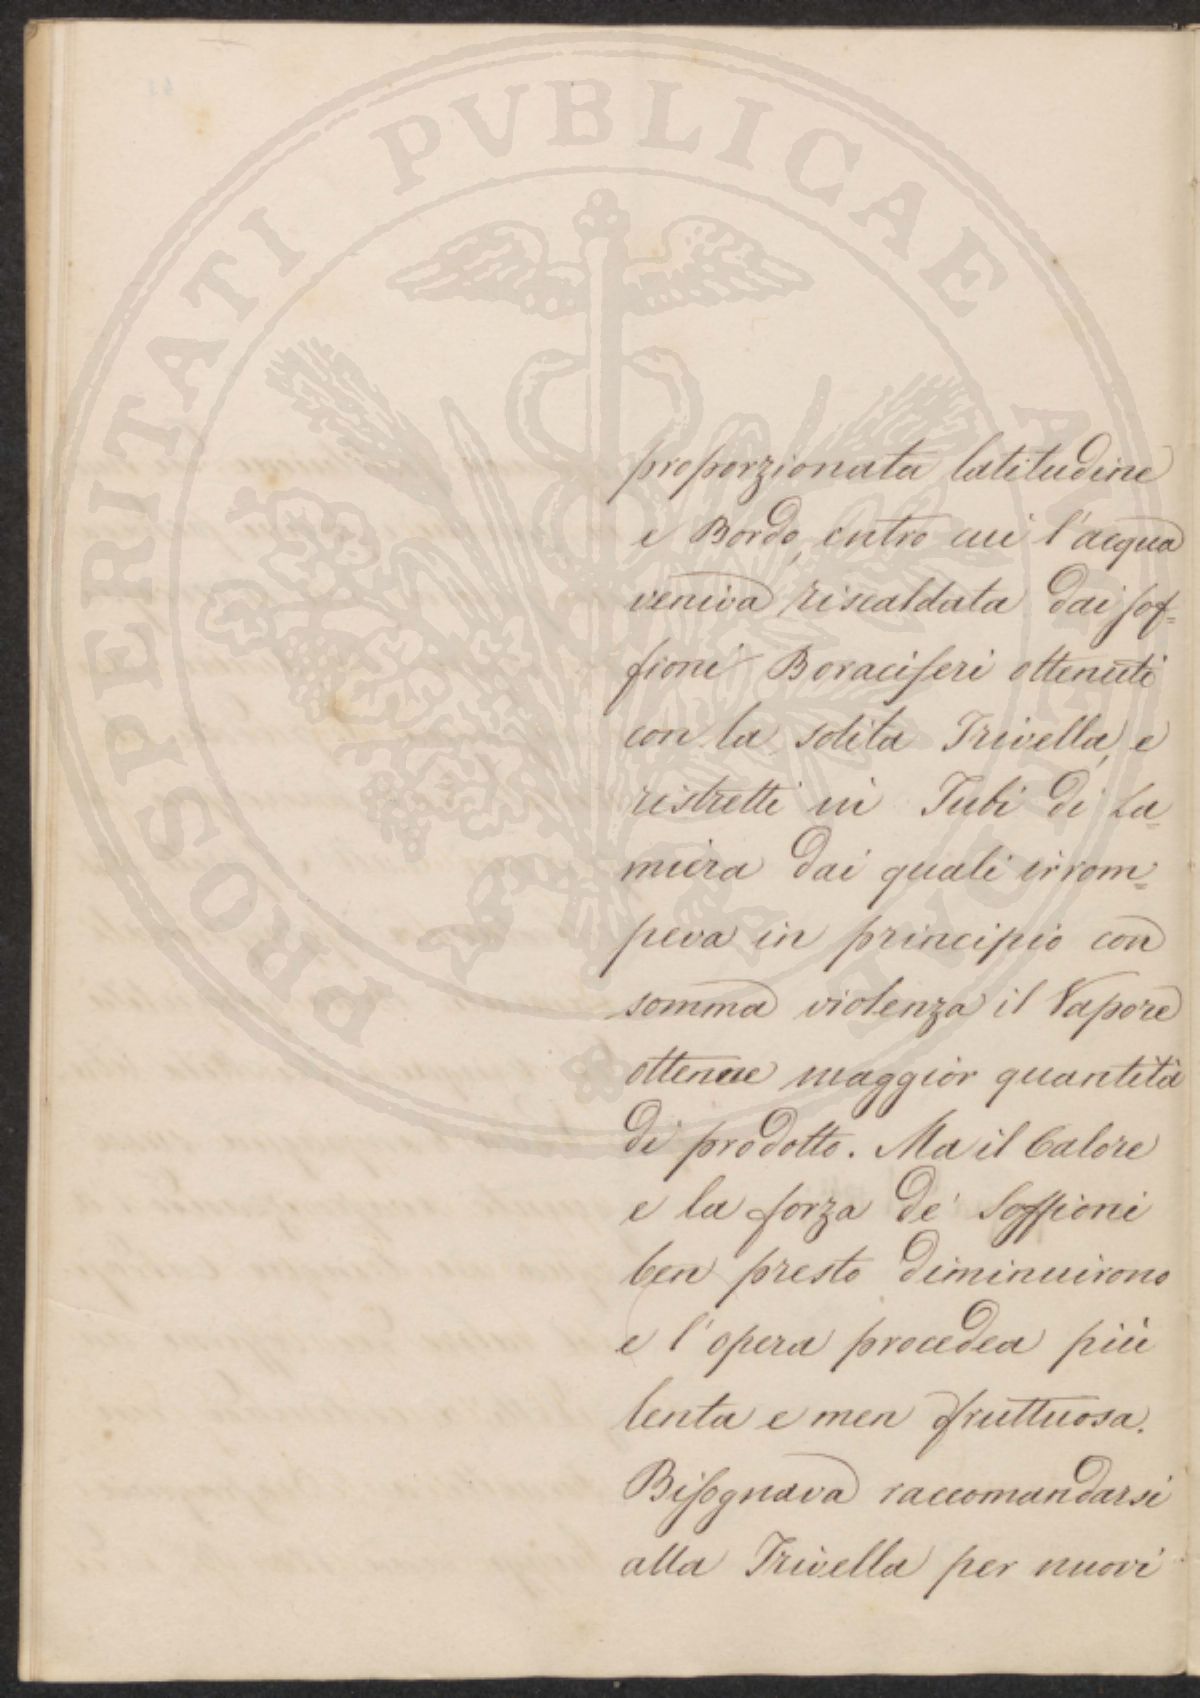 PROSPERITATI PUBLICAE AUGENDAE
proporzionata latitudine
e Bordo, entro cui l'acqua
veniva riscaldata dai sof=
fioni Boraciferi ottenuti
con la solita Trivella, e
ristretti in Tubi di La=
miera dai quali irrom=
peva in principio con
somma violenza il Vapore
ottenne maggior quantità
di prodotto. Ma il Calore
e la forza de' Soffioni
ben presto diminuirono
e l'opera procedea più
lenta e men fruttuosa.
Bisognava raccomandarsi
alla Trivella per nuovi